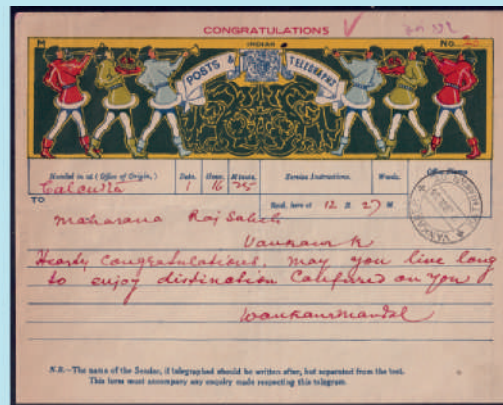 CONGRATULATIONS
INDIAN
M No.
POSTS & TELEGRAPHS
Handed in at (Office of Origin.) Date. Hour. Minute. Service Instructions. Words.
Calcutta 1 16 25
TO Recd. here at 12 H. 27 M.
Maharana Raj Saheb
Vankaner
Hearty Congratulations, may you live long
to enjoy distinction Confered on you
Wankanermandal
N.B.—The name of the Sender, if telegraphed should be written after, but separated from the text.
This form must accompany any enquiry made respecting this telegram.